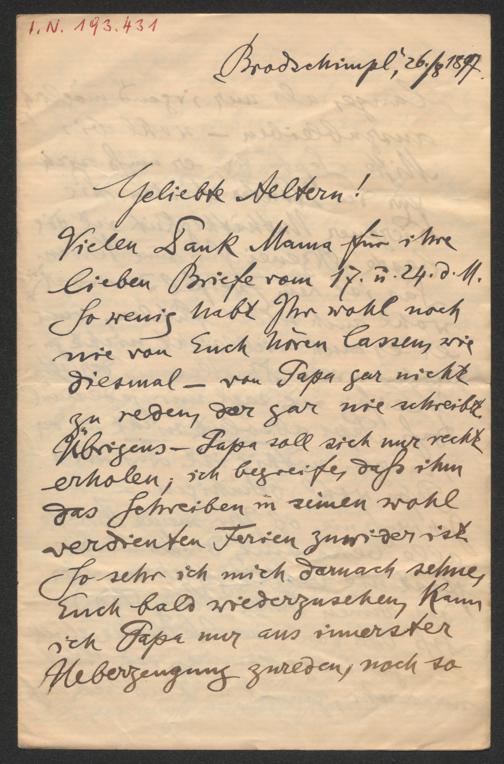 I.N. 193.431
Brodschimpl, 26./8 1897.
Geliebte Aeltern!
Vielen Dank Mama für ihre
lieben Briefe vom 17. u. 24. d. M.
So wenig habt Ihr wohl noch
nie von Euch hören lassen, wie
diesmal – von Papa gar nicht
zu reden, der gar nie schreibt.
Übrigens – Papa soll sich nur recht
erholen, ich begreife, daß ihm
das Schreiben in seinen wohl
verdienten Ferien zuwider ist.
So sehr ich mich darnach sehne,
Euch bald wiederzusehen, kann
ich Papa nur aus innerster
Ueberzeugung zureden, noch so